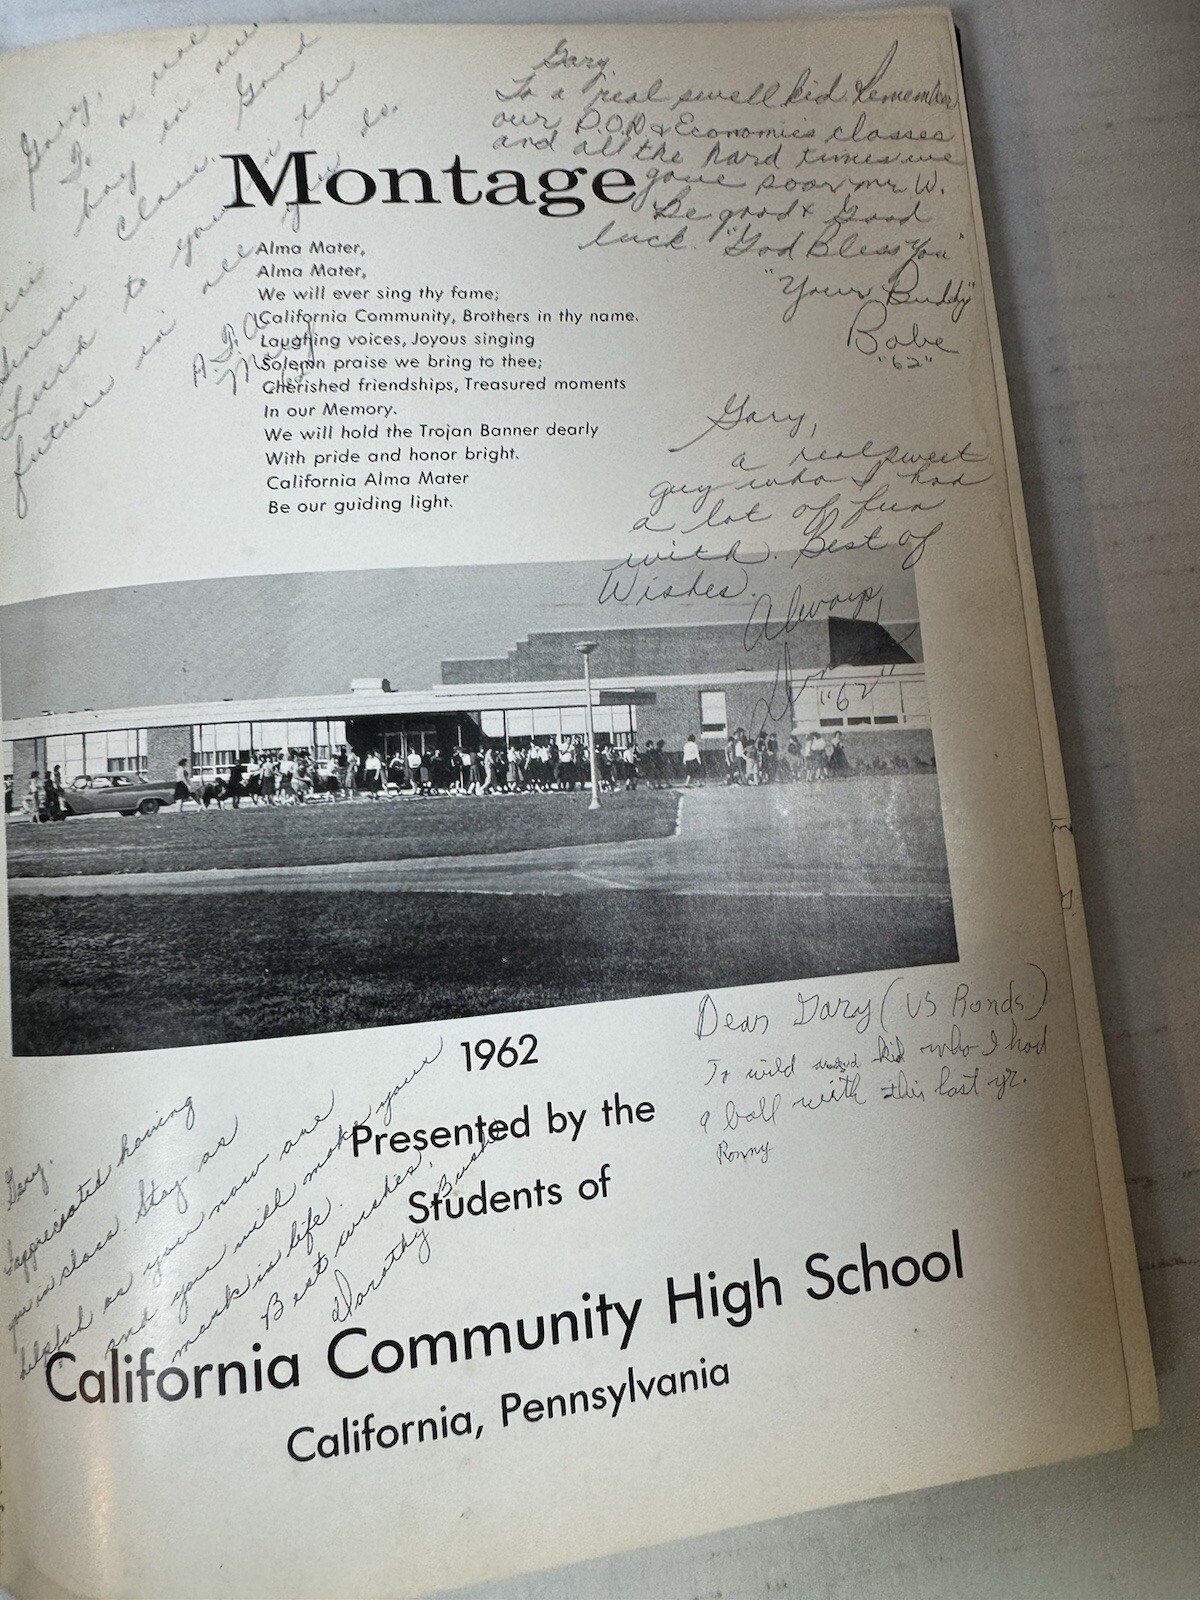 Gary,
To a nice
boy in our
class. Good
luck to you in the
future in all you do.
A.F.A.
Gary,
To a real swell kid. Remember
our P.O.D. & Economics classes
and all the hard times we
gave poor mr W.
Be good & Good
luck. "God Bless You"
"Your Buddy"
Babe
"62"
Montage
Alma Mater,
Alma Mater,
We will ever sing thy fame;
California Community, Brothers in thy name.
Laughing voices, Joyous singing
Solemn praise we bring to thee;
Cherished friendships, Treasured moments
In our Memory.
We will hold the Trojan Banner dearly
With pride and honor bright.
California Alma Mater
Be our guiding light.
Gary,
a real sweet
guy who I had
a lot of fun
with. Best of
Wishes.
Always,
"62"
Dear Gary (US Bonds)
To wild kid who I had
a ball with this last yr.
Ronny
1962
Presented by the
Students of
California Community High School
California, Pennsylvania
Gary.
I appreciated having
you in class. Stay as
helpful as you now are
and you will make your
mark in life.
Best wishes,
Dorathy Bush